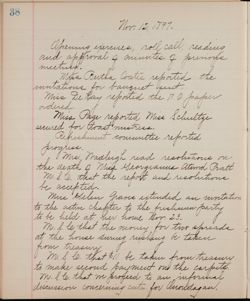 38
Nov. 12, 1897.
Opening exercises, roll call, reading
and approval of minutes of previous
meeting.
Miss Bertha Coste reported the
invitations for banquet sent.
Miss De Kay reported the P.O. paper
ordered.
Miss Page reported Miss Schultze
secured for toast mistress.
Refreshment committee reported
progress.
Mrs. read resolutions on
the death of Miss Georgianna Atwood Pratt.
M. S. C. that the report and resolutions
be accepted.
Miss Helen Graves extended an invitation
to the active chapter to the freshmen party
to be held at her home Nov. 23.
M. S. C. that the money for two spreads
at the house during rushing be taken
from treasury.
M. S. C. that be taken from treasury
to make second payment on the
M. S. C. that we proceed to an informal
discussion concerning cuts for